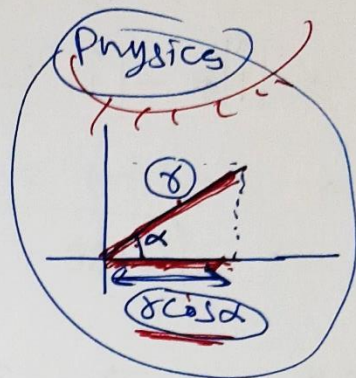 Physics
r
α
r cos α